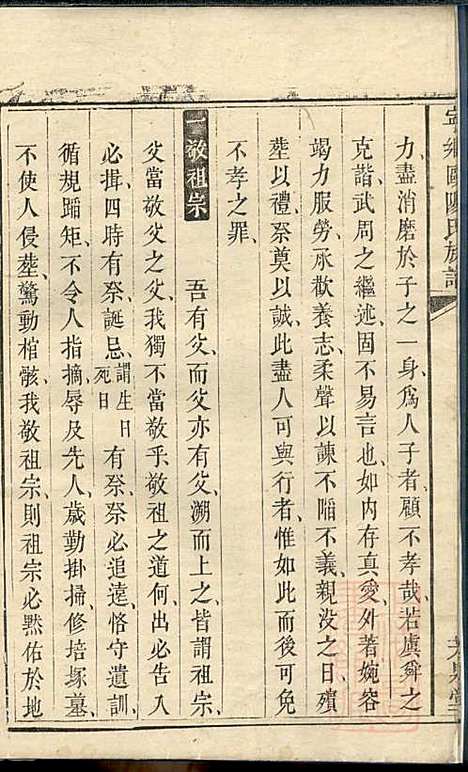 寧鄉歐陽氏族譜
力、盡消磨於子之一身、爲人子者、顧不孝哉、若虞舜之
克諧、武周之繼述、固不易言也、如内存真愛、外著婉容
竭力服勞、承歡養志、柔聲以諫、不䧟不義、親没之日、殯
塟以禮、祭奠以誠、此盡人可與行者、惟如此而後可免
不孝之罪、
一敬祖宗 吾有父、而父亦有父、溯而上之、皆謂祖宗、
父當敬父之父、我獨不當敬乎、敬祖之道何、出必告、入
必揖、四時有祭、誕忌、謂生日死日有祭、祭必追遠、恪守遺訓、
循規蹈矩、不令人指摘、辱及先人、歲勤掛掃、修培塚墓、
不使人侵塟、驚動棺骸、我敬祖宗、則祖宗必黙佑於地